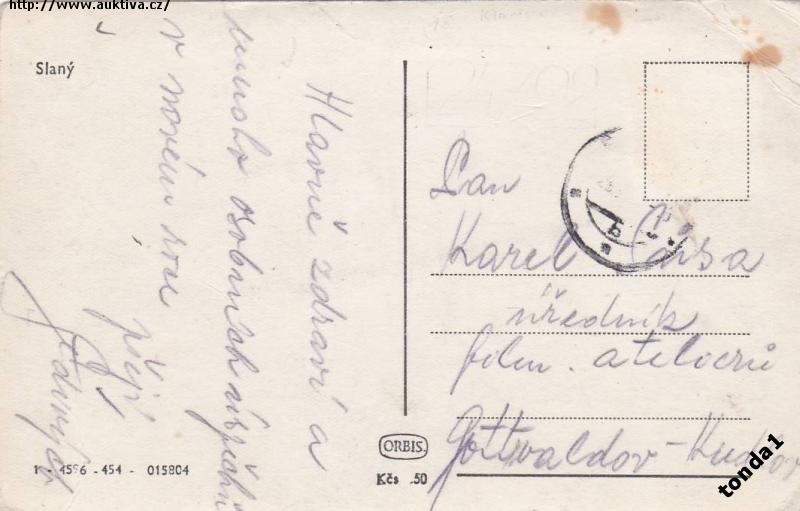 http://www.auktiva.cz/
Slaný
Hlavně zdraví a
mnoho osobních úspěchů
v novém roce
přejí
Pan
Karel
úředník
film. ateliérů
Gottwaldov-Kudlov
ORBIS
Kčs .50
1 - 4596 - 454 - 015804
tonda1